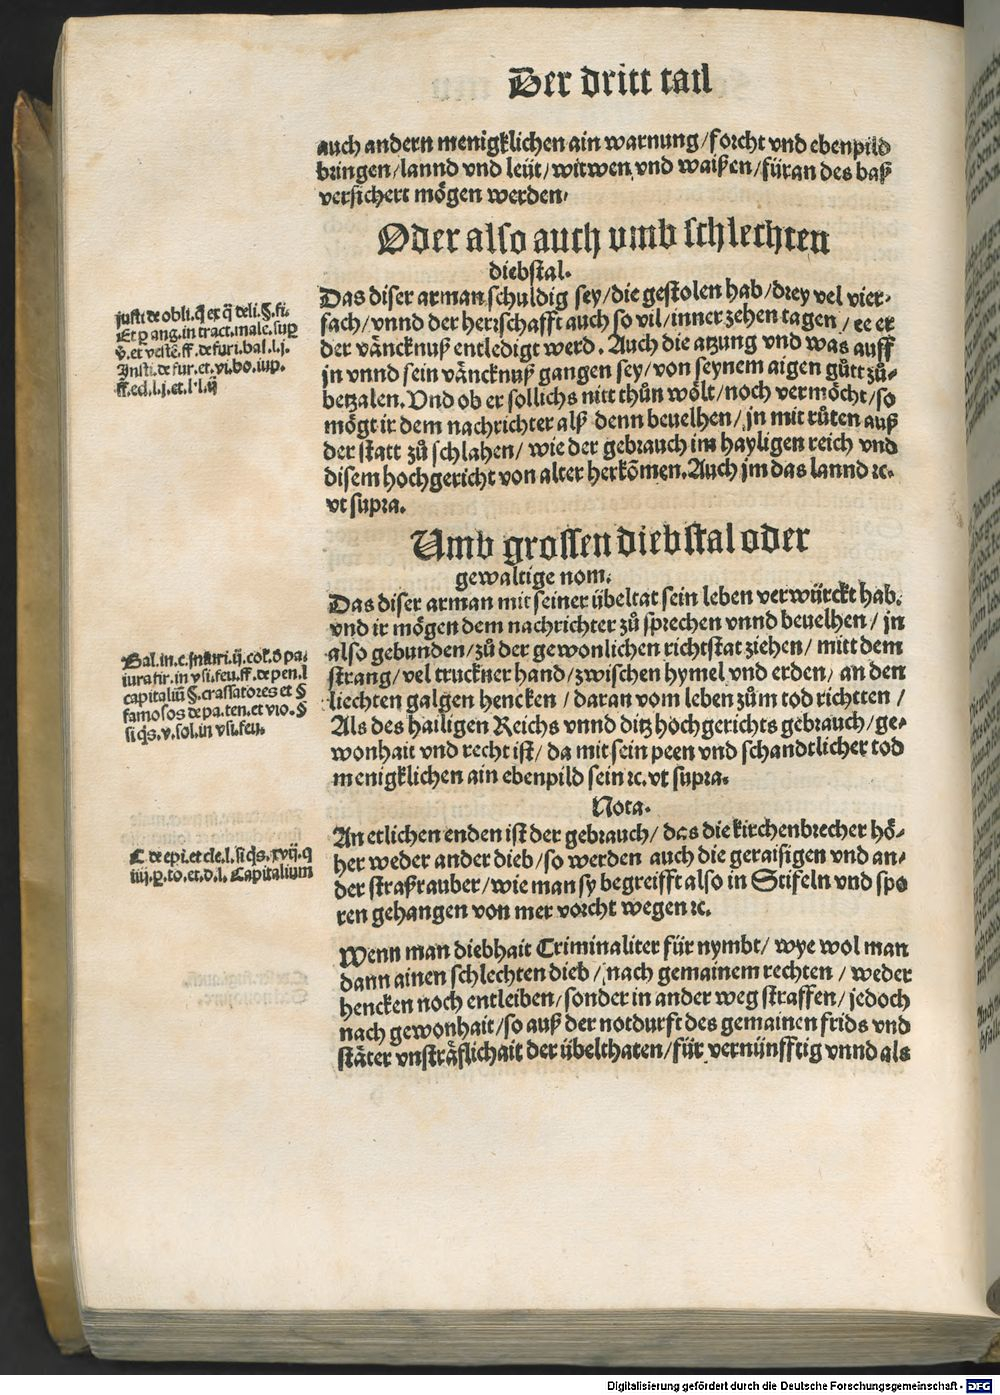 Der dritt tail
auch andern menigklichen ain warnung/forcht vnd ebenpild
bringen/lannd vnd leüt/witwen vnd waißen/füran des baß
versichert mögen werden.
Oder also auch vmb schlechten
diebstal.
Das diser arman schuldig sey/die gestolen hab/drey vel vier-
fach/vnnd der herrschafft auch so vil/inner zehen tagen/ee er
der väncknuß entledigt werd. Auch die atzung vnd was auff
jn vnnd sein väncknuß gangen sey/von seynem aigen gůtt zů-
betzalen. Vnd ob er sollichs nitt thůn wölt/noch vermöcht/so
mögt ir dem nachrichter alß denn beuelhen/jn mit růten auß
der statt zů schlahen/wie der gebrauch im hayligen reich vnd
disem hochgericht von alter herkõmen. Auch jm das lannd ꝛc.
vt supra.
justi. de obli. q̃ ex q̃ deli. §. fi.
Et p ang. in tract. male. sup
v̊. et veste. ff. de furi. bal. l. j.
Insti. de fur. et. vi. bo. iup.
ff. ed. l. j. et. l. l. ij
Vmb grossen diebstal oder
gewaltige nom.
Das diser arman mit seiner übeltat sein leben verwürckt hab.
vnd ir mögen dem nachrichter zů sprechen vnnd beuelhen/jn
also gebunden/zů der gewonlichen richtstat ziehen/mitt dem
strang/vel truckner hand/zwischen hymel vnd erden/an den
liechten galgen hencken/daran vom leben zům tod richtten/
Als des hailigen Reichs vnnd ditz hochgerichts gebrauch/ge-
wonhait vnd recht ist/da mit sein peen vnd schandtlicher tod
menigklichen ain ebenpild sein ꝛc. vt supra.
Bal. in. c. ij. col. d pa.
iura fir. in vsi. feu. ff. de pen. l
capitaliũ §. crassatores et §
famosos de pa. ten. et vio. §
si q̃s. v. sol. in vsi. feu.
Nota.
An etlichen enden ist der gebrauch/das die kirchenbrecher hö-
her weder ander dieb/so werden auch die geraisigen vnd an-
der straßrauber/wie man sy begreifft also in Stifeln vnd spo
ren gehangen von mer vorcht wegen ꝛc.
C. de epi. et cle. l. si q̃s. xvij. q
iiij. p. to. et. d. l. Capitalium
Wenn man diebhait Criminaliter für nymbt/wye wol man
dann ainen schlechten dieb/nach gemainem rechten/weder
hencken noch entleiben/sonder in ander weg straffen/jedoch
nach gewonhait/so auß der notdurft des gemainen frids vnd
stäter vnsträflichait der übelthaten/für vernünfftig vnnd als
Digitalisierung gefördert durch die Deutsche Forschungsgemeinschaft - DFG